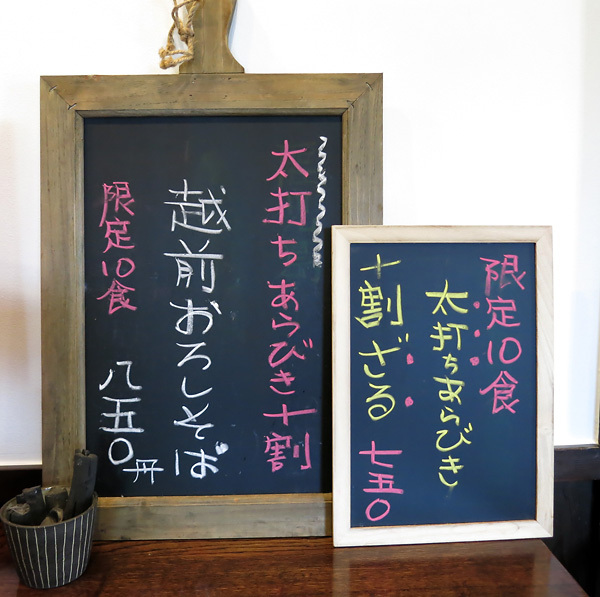 太打ちあらびき十割
越前おろしそば
限定10食
八五〇円
限定10食
太打ちあらびき
十割ざる
七五〇